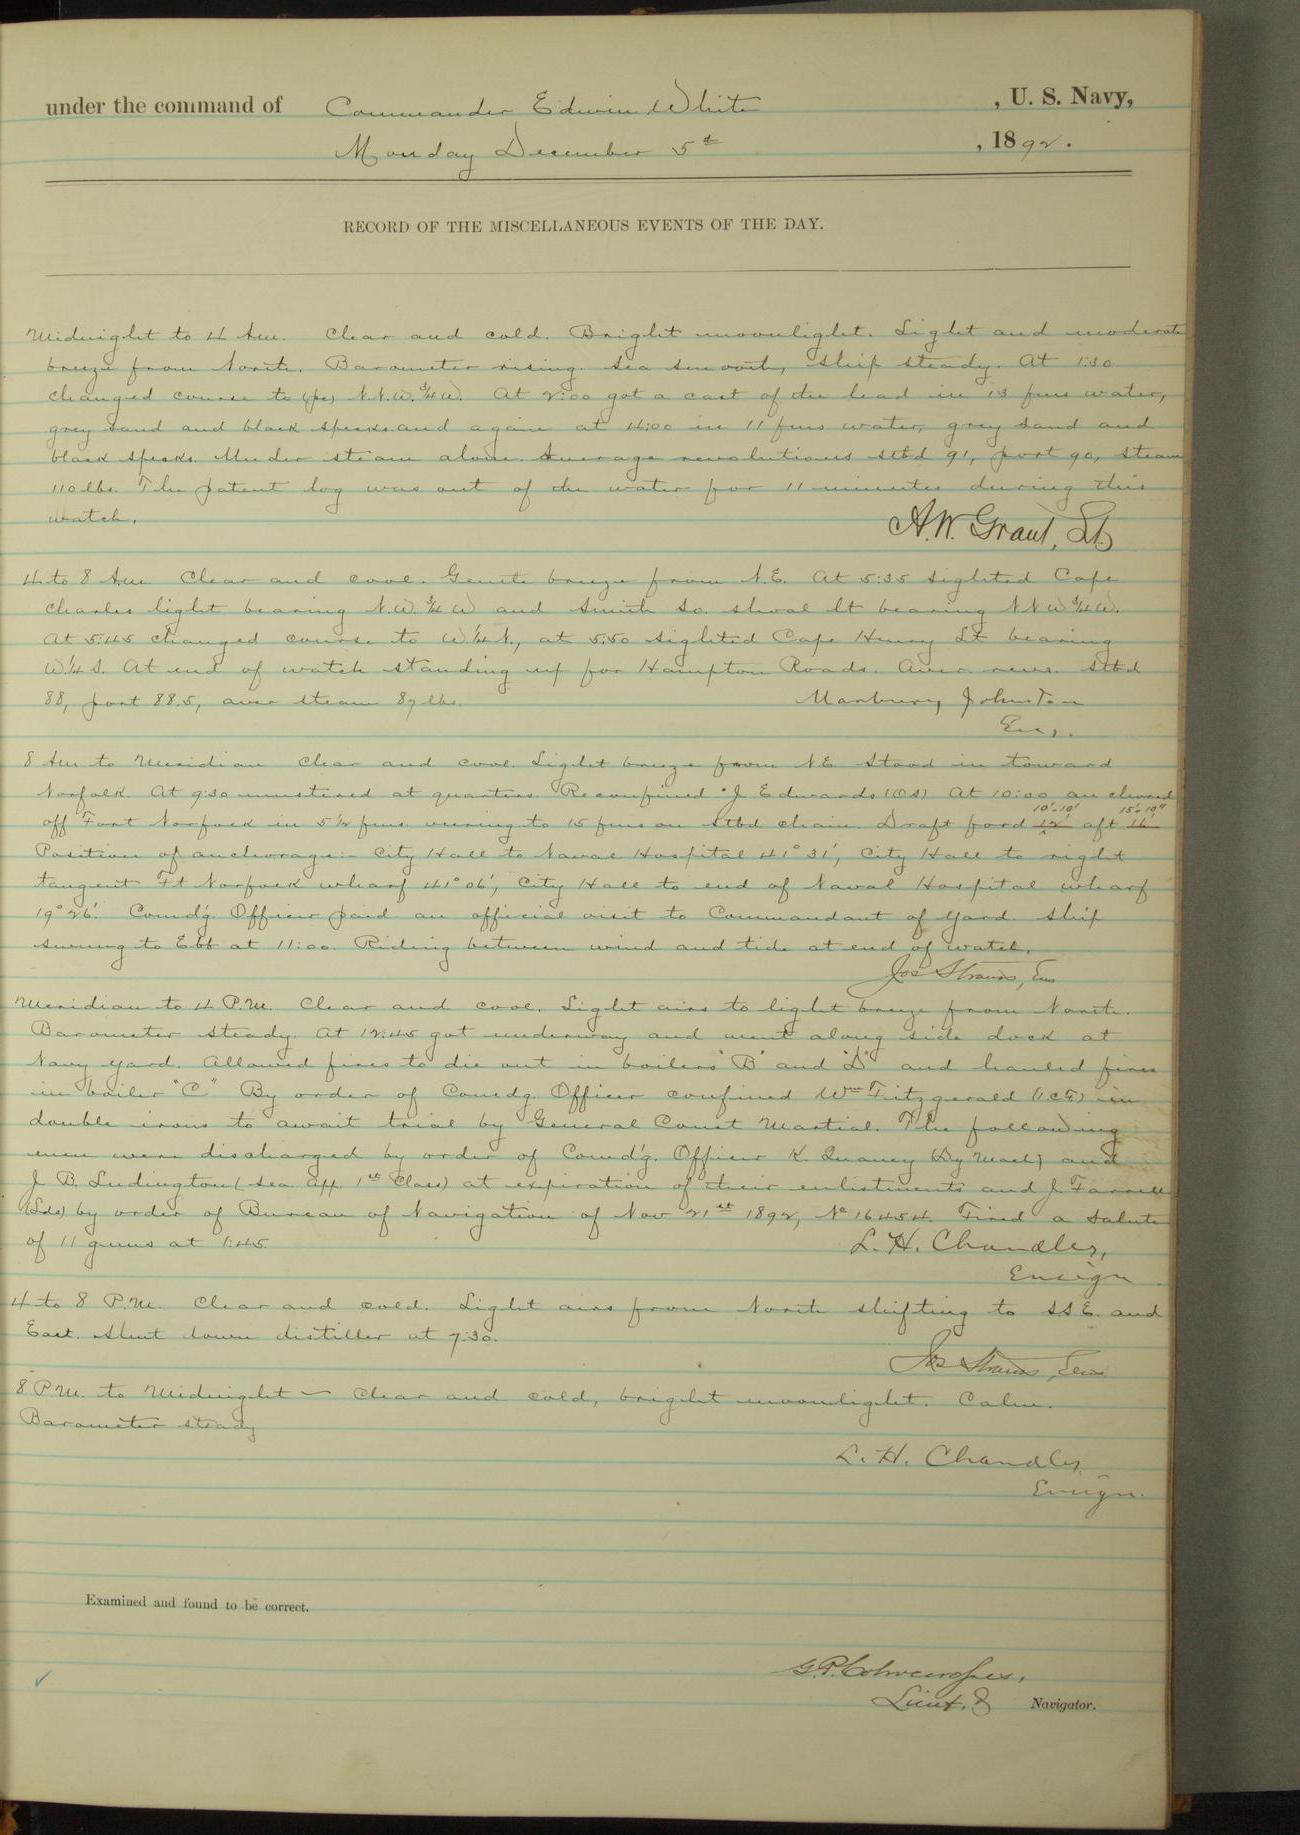 under the command of Commander Edwin White , U. S. Navy,
Monday December 5th , 1892.
RECORD OF THE MISCELLANEOUS EVENTS OF THE DAY.
Midnight to 4 Am. Clear and cold. Bright moonlight. Light and moderate
breeze from North. Barometer rising. Sea smooth, ship steady. At 1:30
changed course to (psc) N.N.W. 3/4 W. At 2:00 got a cast of the lead in 13 fms water,
grey sand and black specks and again at 4:00 in 11 fms water, grey sand and
black specks. Under steam alone. Average revolutions stbd 91, port 90, steam
110 lbs. The patent log was out of the water for 11 minutes during this
watch. A. W. Grant, Lt.
4 to 8 Am Clear and cool. Gentle breeze from N.E. At 5:35 sighted Cape
Charles light bearing N.W. 3/4 W and Smith So. shoal lt bearing N N W 3/4 W.
At 5:45 changed course to W 1/4 N., at 5:50 sighted Cape Henry Lt bearing
W. 1/4 S. At end of watch standing up for Hampton Roads. Aver revs. stbd
88, port 88.5, aver steam 87 lbs. Marbury Johnston
Ens.
8 Am to Meridian Clear and cool. Light breeze from NE Stood in toward
Norfolk. At 9:30 mustered at quarters. Reconfined J Edwards (OS) At 10:00 anchored
off Fort Norfolk in 5 1/2 fms. veering to 15 fms on stbd chain. Draft ford 12' 10'-10' aft 16' 15'-10"
Position of anchorage:- City Hall to Naval Hospital 41° 31', City Hall to right
tangent Ft Norfolk wharf 41° 06', City Hall to end of Naval Hospital wharf
19° 26'. Comd'g. Officer paid an official visit to Commandant of yard. Ship
swung to Ebb at 11:00. Riding between wind and tide at end of watch.
Jos Strauss, Ens
Meridian to 4 P.M. Clear and cool. Light airs to light breeze from North.
Barometer steady. At 12:45 got underway and went along side dock at
Navy yard. Allowed fires to die out in boilers "B" and "D" and hauled fires
in boiler "C" By order of Comdg. Officer confined Wm Fitzgerald (1CF) in
double irons to await trial by General Court Martial. The following
men were discharged by order of Comd'g. Officer K. Quaney (By Mach) and
J. B. Ludington (Sea. App. 1st Class) at expiration of their enlistments and J. Farrell
(Lds) by order of Bureau of Navigation of Nov 21st 1892, No 16454. Fired a salute
of 11 guns at 1:45. L. H. Chandler,
Ensign.
4 to 8 P.M. Clear and cold. Light airs from North shifting to S.S.E. and
East. Shut down distiller at 7:30.
Jos Strauss, Ens
8 P.M. to Midnight — Clear and cold, bright moonlight. Calm.
Barometer steady
L. H. Chandler
Ensign.
Examined and found to be correct.
G. P.
Lieut. & Navigator.